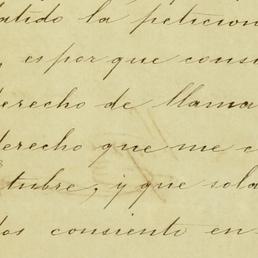 atido la peticion
, es por que consi
derecho de llama
derecho que me c
tubre, y que sola
dos consiento en